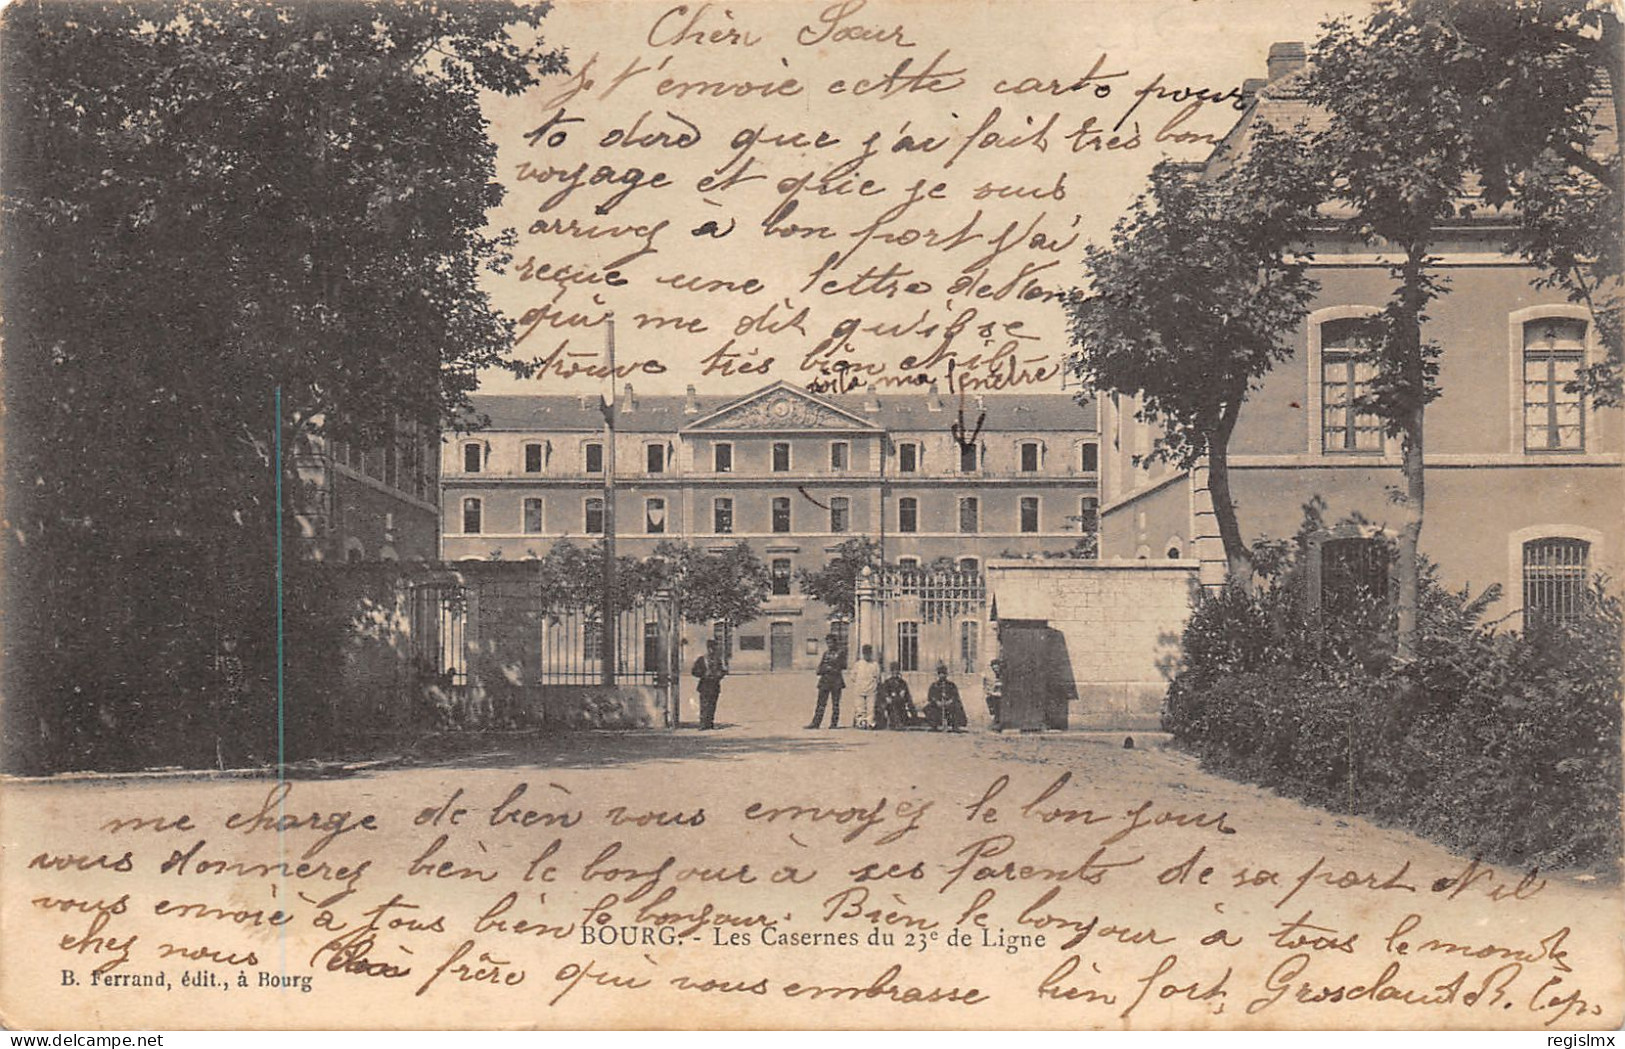 Chèri Sœur
Je t'envoie cette carto pour
to dire que j'ai fait très bon
voyage et que je suis
arrivez à bon port j'ai
reçue une lettre de
qui me dit qu'il se
trouve très bièn et il
voilà ma fenêtre
me charge de bièn vous envoyéz le bon jour
vous donnerez bièn le bonjour à ses Parents de sa part et il
vous envoiè à tous bièn le bonjour. Bièn le bonjour à tous le monde
BOURG. - Les Casernes du 23e de Ligne
chez nous frère qui vous embrasse bièn fort, Grosclaude R.
B. Ferrand, édit., à Bourg
regislmx